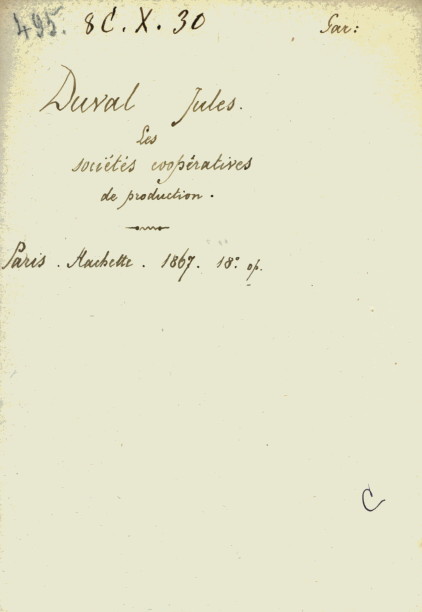 495. 8C. X. 30 Gar:
Duval Jules.
Les
sociétés coopératives
de production.
Paris. Hachette. 1867. 18° op.
C